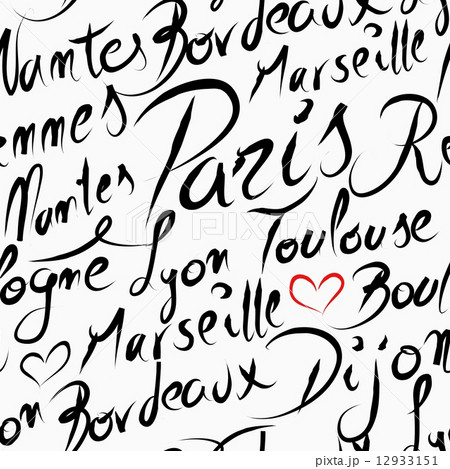 Nantes Bordeaux
Marseille
ennes Paris Re
Nantes
ogne Lyon Toulouse
Marseille Boul
on Bordeaux Dijon
Ly
PIXTA
pixta.jp - 12933151